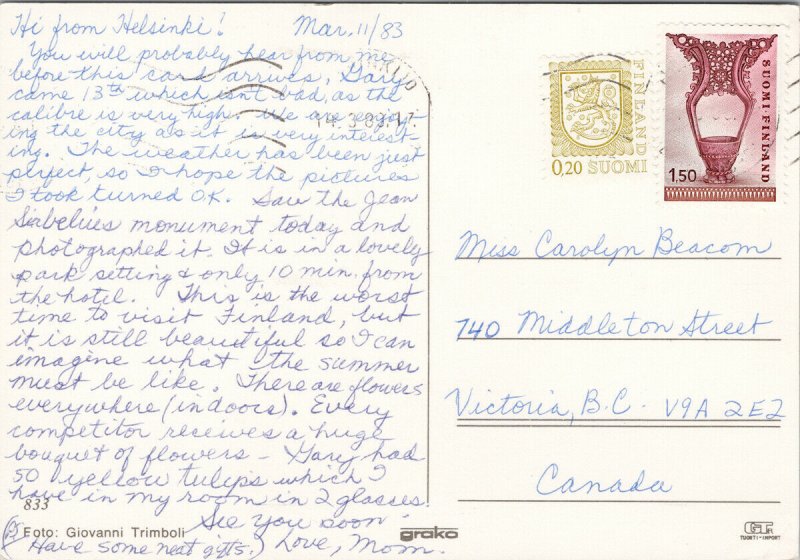 Hi from Helsinki! Mar. 11/83
You will probably hear from me
before this card arrives. Gary
came 13th which isn't bad, as the
calibre is very high. We are enjoy-
ing the city as it is very interest-
ing. The weather has been just
perfect, so I hope the pictures
I took turned OK. Saw the Jean
Sibelius monument today and
photographed it. It is in a lovely
park setting & only 10 min. from
the hotel. This is the worst
time to visit Finland, but
it is still beautiful so I can
imagine what the summer
must be like. There are flowers
everywhere (indoors). Every
competitor receives a huge
bouquet of flowers – Gary had
50 yellow tulips which I
have in my room in 2 glasses.
See you soon
(Have some neat gifts.) Love, Mom.
833
Foto: Giovanni Trimboli
grako
GT
TUORTI-IMPORT
FINLAND
0,20 SUOMI
SUOMI FINLAND
1,50
Miss Carolyn Beacom
740 Middleton Street
Victoria, B.C. V9A 2E2
Canada